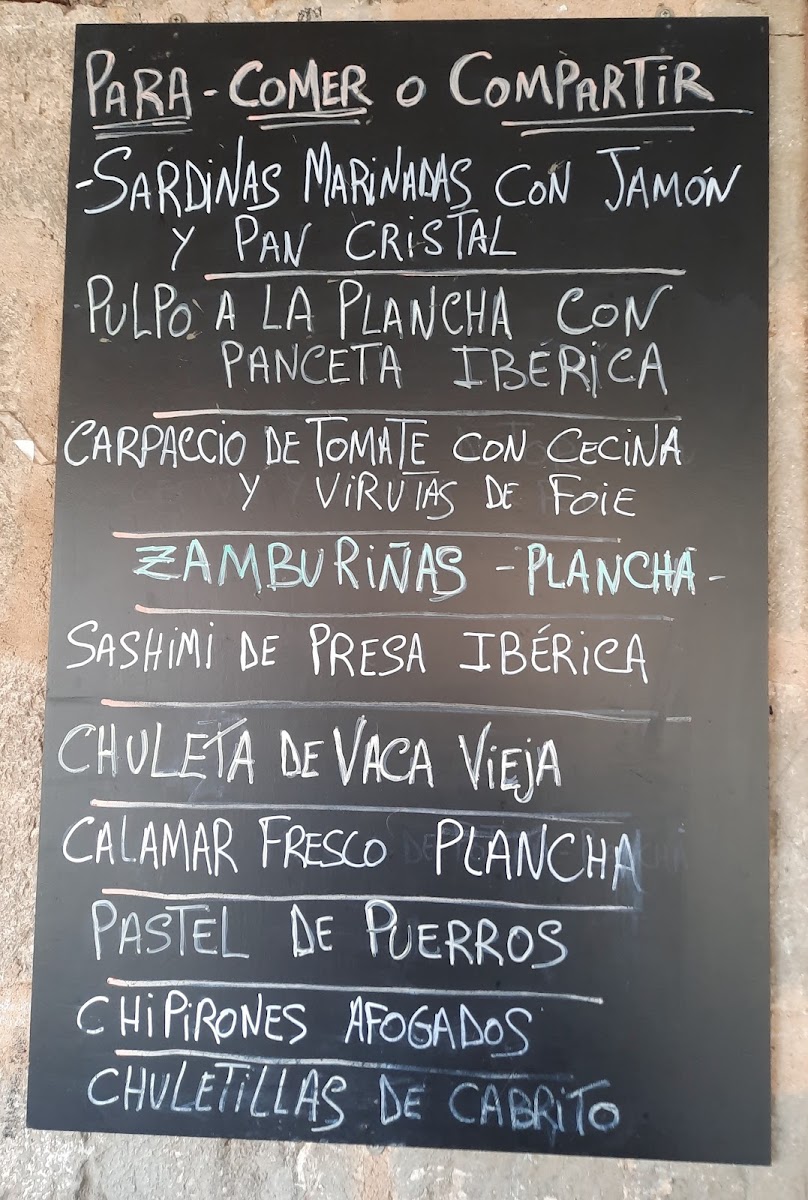 PARA - COMER O COMPARTIR
- SARDINAS MARINADAS CON JAMÓN
Y PAN CRISTAL
PULPO A LA PLANCHA CON
PANCETA IBÉRICA
CARPACCIO DE TOMATE CON CECINA
Y VIRUTAS DE FOIE
ZAMBURIÑAS - PLANCHA -
SASHIMI DE PRESA IBÉRICA
CHULETA DE VACA VIEJA
CALAMAR FRESCO PLANCHA
PASTEL DE PUERROS
CHIPIRONES AFOGADOS
CHULETILLAS DE CABRITO